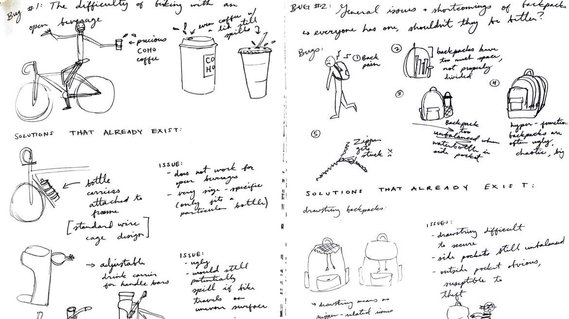 Bug #1: The difficulty of biking with an
open beverage
→ precious
COHO
coffee
even coffee w/
a lid still
spills!
CO
HO
SOLUTIONS THAT ALREADY EXIST:
→ bottle
carriers
attached to
frame
[standard wire
cage design]
ISSUE:
- does not work for
open beverages
- very size-specific
(only fits a
particular bottle)
→ adjustable
drink carrier
for handle bars
ISSUE:
- ugly
- would still
potentially
spill if bike
travels on
uneven surface
BUG #2: General issues + shortcomings of backpacks
is everyone has one, shouldn't they be better?
Bugs:
① Back
pain
② backpacks have
too much space,
not properly
divided
③
Backpack
too
unbalanced when
waterbottle in
side pocket
④
hyper-function
backpacks are
often ugly,
chaotic, big
⑤
Zipper
gets
stuck
SOLUTIONS THAT ALREADY EXIST:
drawstring backpacks:
→ drawstring means no
zipper-related issues
ISSUE:
- drawstring difficult
to secure
- side pockets still unbalanced
- outside pocket obvious,
suseptible to
theft